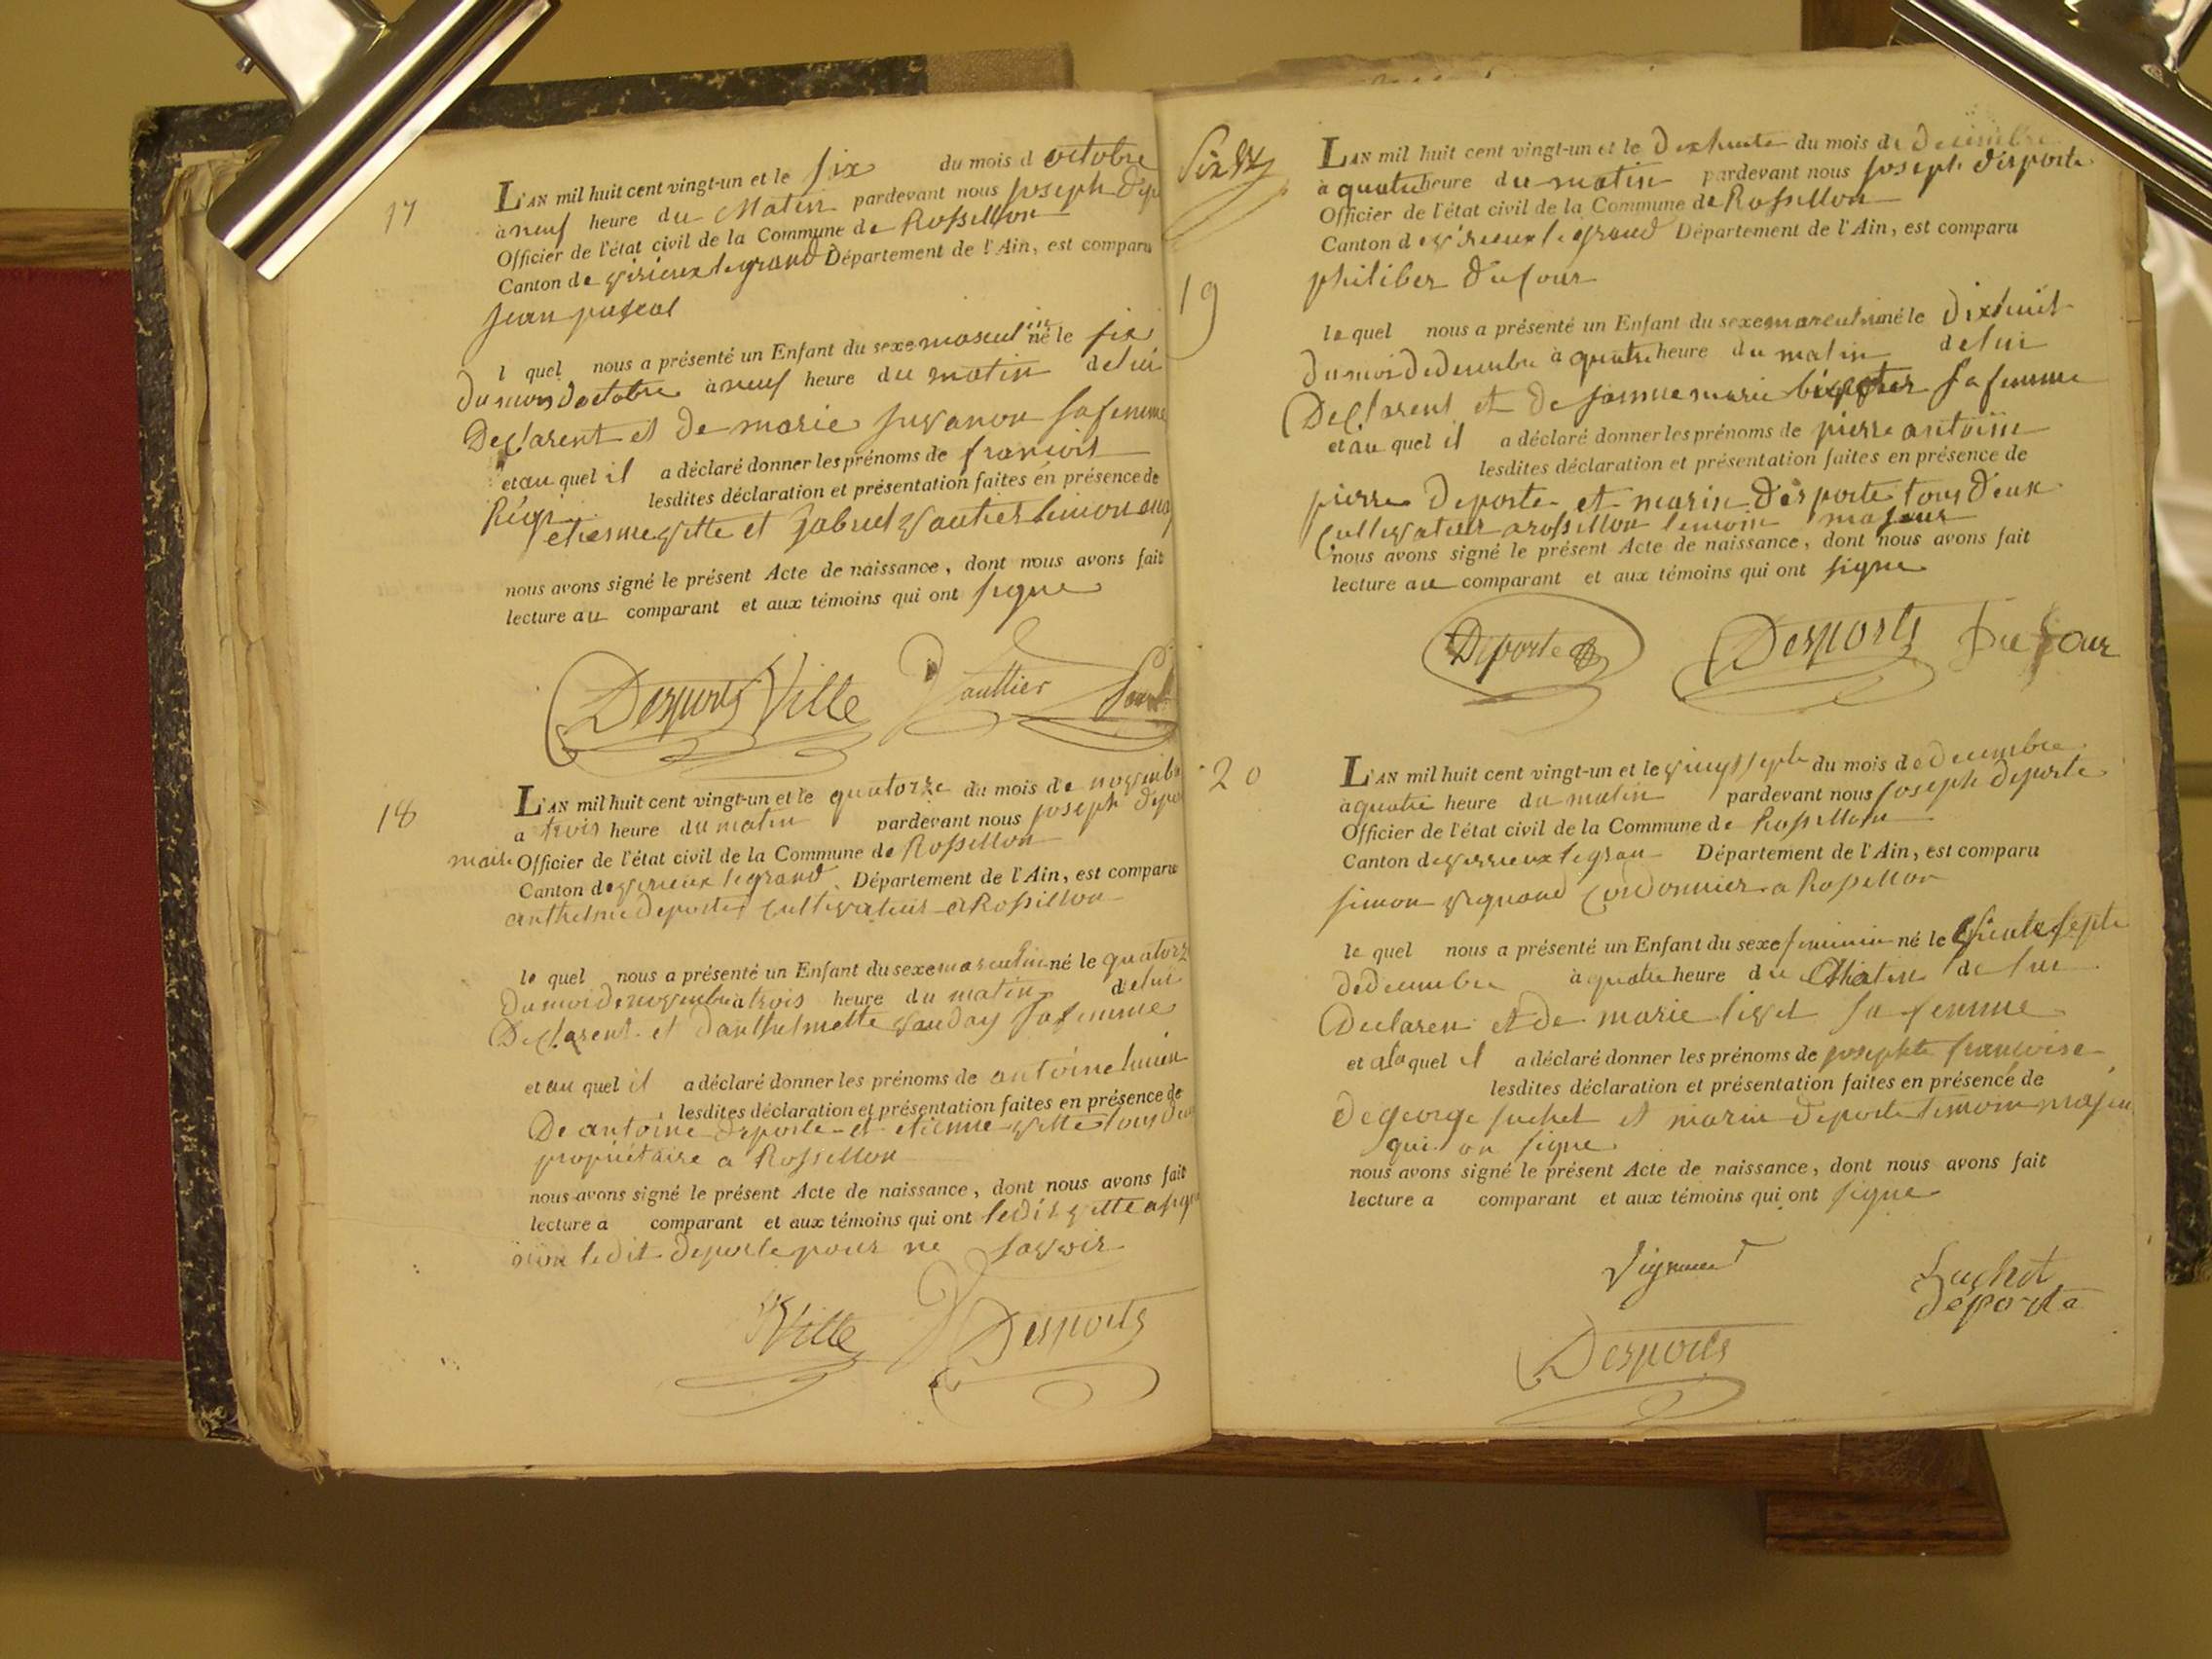 17
L'AN mil huit cent vingt-un et le six du mois d octobre
à neuf heure du Matin pardevant nous joseph dep
Officier de l'état civil de la Commune de Rossillon
Canton de virieux le grand Département de l'Ain, est comparu
jean pascal
l quel nous a présenté un Enfant du sexe masculin né le six
du mois doctobre à neuf heure du matin de lui
Declarent et de marie juvanon sa femme
et au quel il a déclaré donner les prénoms de francois
Régi lesdites déclaration et présentation faites en présence de
etienne vitte et gabriel vautier
nous avons signé le présent Acte de naissance, dont nous avons fait
lecture au comparant et aux témoins qui ont signe
Desports Ville Gaultier
18
L'AN mil huit cent vingt-un et le quatorze du mois de novembr
a trois heure du matin pardevant nous joseph depo
maire Officier de l'état civil de la Commune de Rossillon
Canton de virieux le grand Département de l'Ain, est comparu
anthelme deportes cultivateur a Rossillon
le quel nous a présenté un Enfant du sexe masculin né le quatorz
du moi de novembre a trois heure du matin de lui
Declarent et danthelmette vauday sa femme
et au quel il a déclaré donner les prénoms de antoine lucien
lesdites déclaration et présentation faites en présence de
De antoine deporte et etienne vitte tous deu
propriétaire a Rossillon
nous avons signé le présent Acte de naissance, dont nous avons fait
lecture a comparant et aux témoins qui ont ledit vitte a sign
non ledit deporte pour ne savoir
Ville Desports
19
L'AN mil huit cent vingt-un et le dixhuite du mois de decembre
à quatre heure du matin pardevant nous joseph desporte
Officier de l'état civil de la Commune de Rossillon
Canton de virieux le grand Département de l'Ain, est comparu
philiber dufour
le quel nous a présenté un Enfant du sexe masculin né le dixhuit
du moi de decembre à quatre heure du matin de lui
Declarent et de jeanne marie sa femme
et au quel il a déclaré donner les prénoms de pierre antoine
lesdites déclaration et présentation faites en présence de
pierre deporte et marin desporte tous deux
cultivateur a rossillon temoin majeur
nous avons signé le présent Acte de naissance, dont nous avons fait
lecture au comparant et aux témoins qui ont signe
Deporte Desports Dufour
20
L'AN mil huit cent vingt-un et le vingt septe du mois de decembre
à quatre heure du matin pardevant nous joseph deporte
Officier de l'état civil de la Commune de Rossillon
Canton de virrieux le gran Département de l'Ain, est comparu
simon vignand cordonnier a Rossillon
le quel nous a présenté un Enfant du sexe feminin né le septe
de decembre à quatre heure du Matin de lui
Declaren et de marie livet sa femme
et a la quel il a déclaré donner les prénoms de josephte francoise
lesdites déclaration et présentation faites en présence de
de george suchet et marin deporte temoin majeu
qui on signe
nous avons signé le présent Acte de naissance, dont nous avons fait
lecture a comparant et aux témoins qui ont signe
Suchet
deporte
Desports